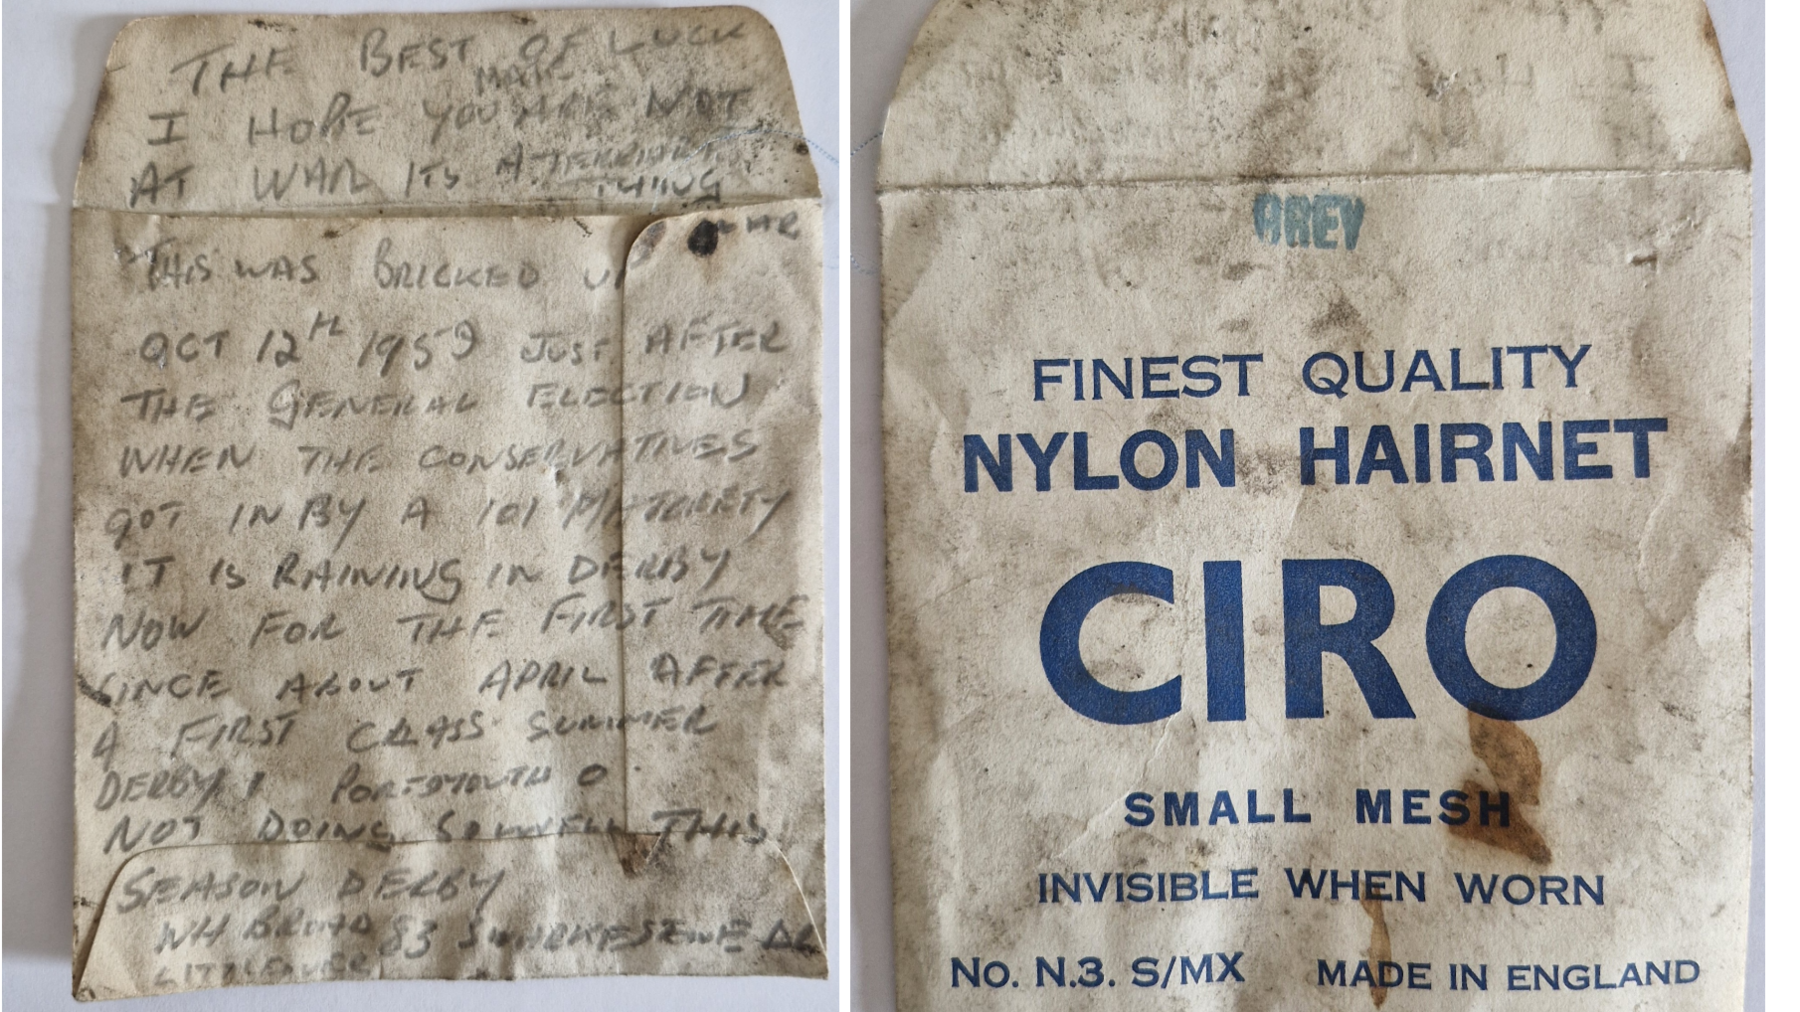 THE BEST OF LUCK
MATE
I HOPE YOU ARE NOT
AT WAR ITS A TERRIBLE
THING
WAR
THIS WAS BRICKED UP
OCT 12TH 1959 JUST AFTER
THE GENERAL ELECTION
WHEN THE CONSERVATIVES
GOT IN BY A 101 MAJORETY
IT IS RAINING IN DERBY
NOW FOR THE FIRST TIME
SINCE ABOUT APRIL AFTER
A FIRST CLASS SUMMER
DERBY 1 PORTSMOUTH 0
NOT DOING SO WELL THIS
SEASON DERBY
WH BROAD 83 SWARKESTONE DR
LITTLEOVER
GREY
FINEST QUALITY
NYLON HAIRNET
CIRO
SMALL MESH
INVISIBLE WHEN WORN
No. N.3. S/MX MADE IN ENGLAND